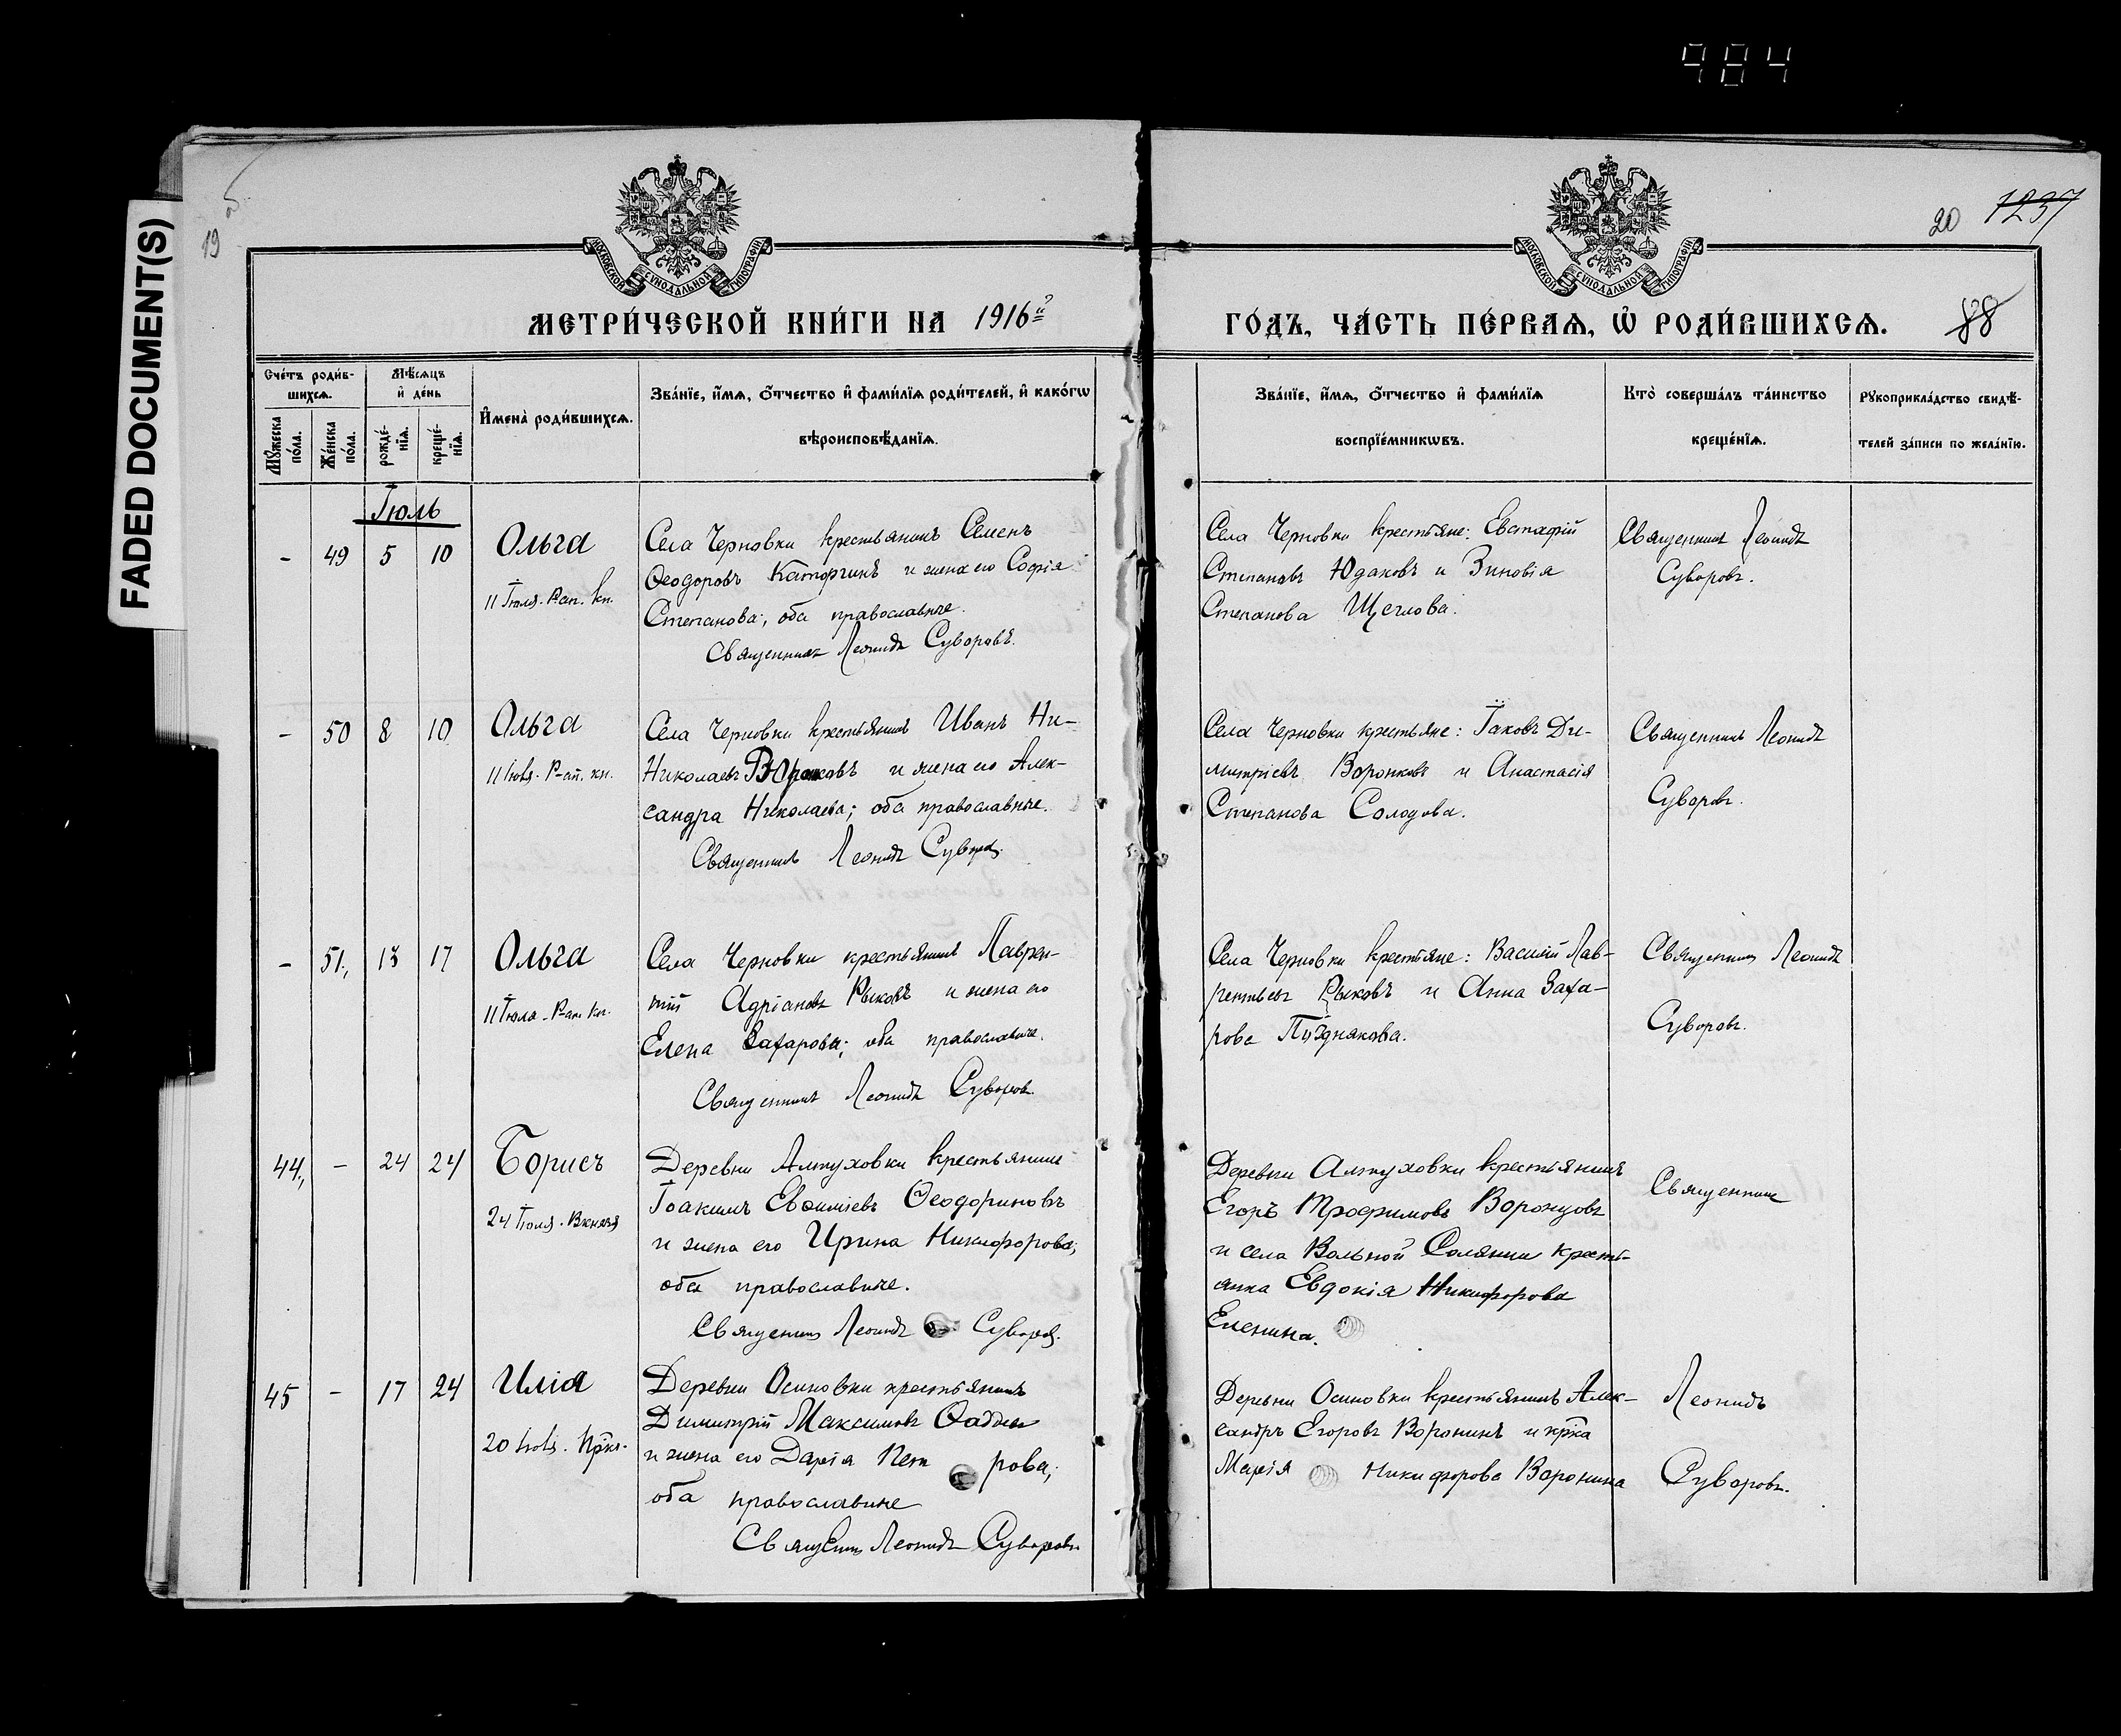 984
FADED DOCUMENT(S)
19
20 1237
МОСКОВСКОЙ СУНОДАЛЬНОЙ ТИПОГРАФІИ
МОСКОВСКОЙ СУНОДАЛЬНОЙ ТИПОГРАФІИ
МЕТРИ́ЧЕСКОЙ КНИ́ГИ НА 1916й
ГО́ДЪ, ЧА́СТЬ ПЕ́РВАѦ, Ѡ РОДИ́ВШИХСѦ. 88
Сче́тъ роди́в-
шихсѧ.
Мꙋ́жеска по́ла.
Же́нска по́ла.
Мѣ́сѧцъ
и де́нь
рожде́-
нїѧ.
креще́-
нїѧ.
И҆мена̀ роди́вшихсѧ.
Зва́нїе, и҆́мѧ, ѻ҆́тчество и҆ фами́лїѧ роди́телей, и҆ како́гѡ
вѣроисповѣ́данїѧ.
Зва́нїе, и҆́мѧ, ѻ҆́тчество и҆ фами́лїѧ
воспрїе́мникѡвъ.
Кто̀ соверша́лъ та́инство
креще́нїѧ.
Рꙋкоприкла́дство свидѣ́-
телей за́писи по жела́нїю.
Іюль
- 49 5 10 Ольга
11 Іюля. Р-ап. кн.
Села Черновки крестьянинъ Семенъ
Ѳеодоровъ Каторгинъ и жена его Софія
Степанова; оба православные.
Священникъ Леонидъ Суворовъ.
Села Черновки крестьяне: Евстафій
Степановъ Юдаковъ и Зиновія
Степанова Щеглова.
Священникъ Леонидъ
Суворовъ.
- 50 8 10 Ольга
11 Іюля. Р-ап. кн.
Села Черновки крестьянинъ Иванъ Ни-
Николаевъ Воронковъ и жена его Алек-
сандра Николаева; оба православные.
Священникъ Леонидъ Суворовъ.
Села Черновки крестьяне: Іаковъ Ди-
митріевъ Воронковъ и Анастасія
Степанова Солодова.
Священникъ Леонидъ
Суворовъ.
- 51., 13 17 Ольга
11 Іюля. Р-ап. кн.
Села Черновки крестьянинъ Лаврен-
тій Адріановъ Рыковъ и жена его
Елена Захарова; оба православные.
Священникъ Леонидъ Суворовъ.
Села Черновки крестьяне: Василій Лав-
рентьевъ Рыковъ и Анна Заха-
рова Позднякова.
Священникъ Леонидъ
Суворовъ.
44., - 24 24 Борисъ
24 Іюля. В князя
Деревни Алтуховки крестьянинъ
Іоакимъ Евѳиміевъ Ѳеодориновъ
и жена его Ирина Никифорова;
оба православные.
Священникъ Леонидъ Суворовъ.
Деревни Алтуховки крестьянинъ
Егоръ Трофимовъ Воронцовъ
и села Вольной Солянки кресть-
янка Евдокія Никифорова
Еленина.
Священникъ
45 - 17 24 Илія
20 Іюля. Прка.
Деревни Осиновки крестьянинъ
Димитрій Максимовъ
и жена его Дарія Пет рова;
оба православные
Священникъ Леонидъ Суворовъ
Деревни Осиновки крестьянинъ Алек-
сандръ Егоровъ Воронинъ и кр-ка
Марія Никифорова Воронина
Леонидъ
Суворовъ.